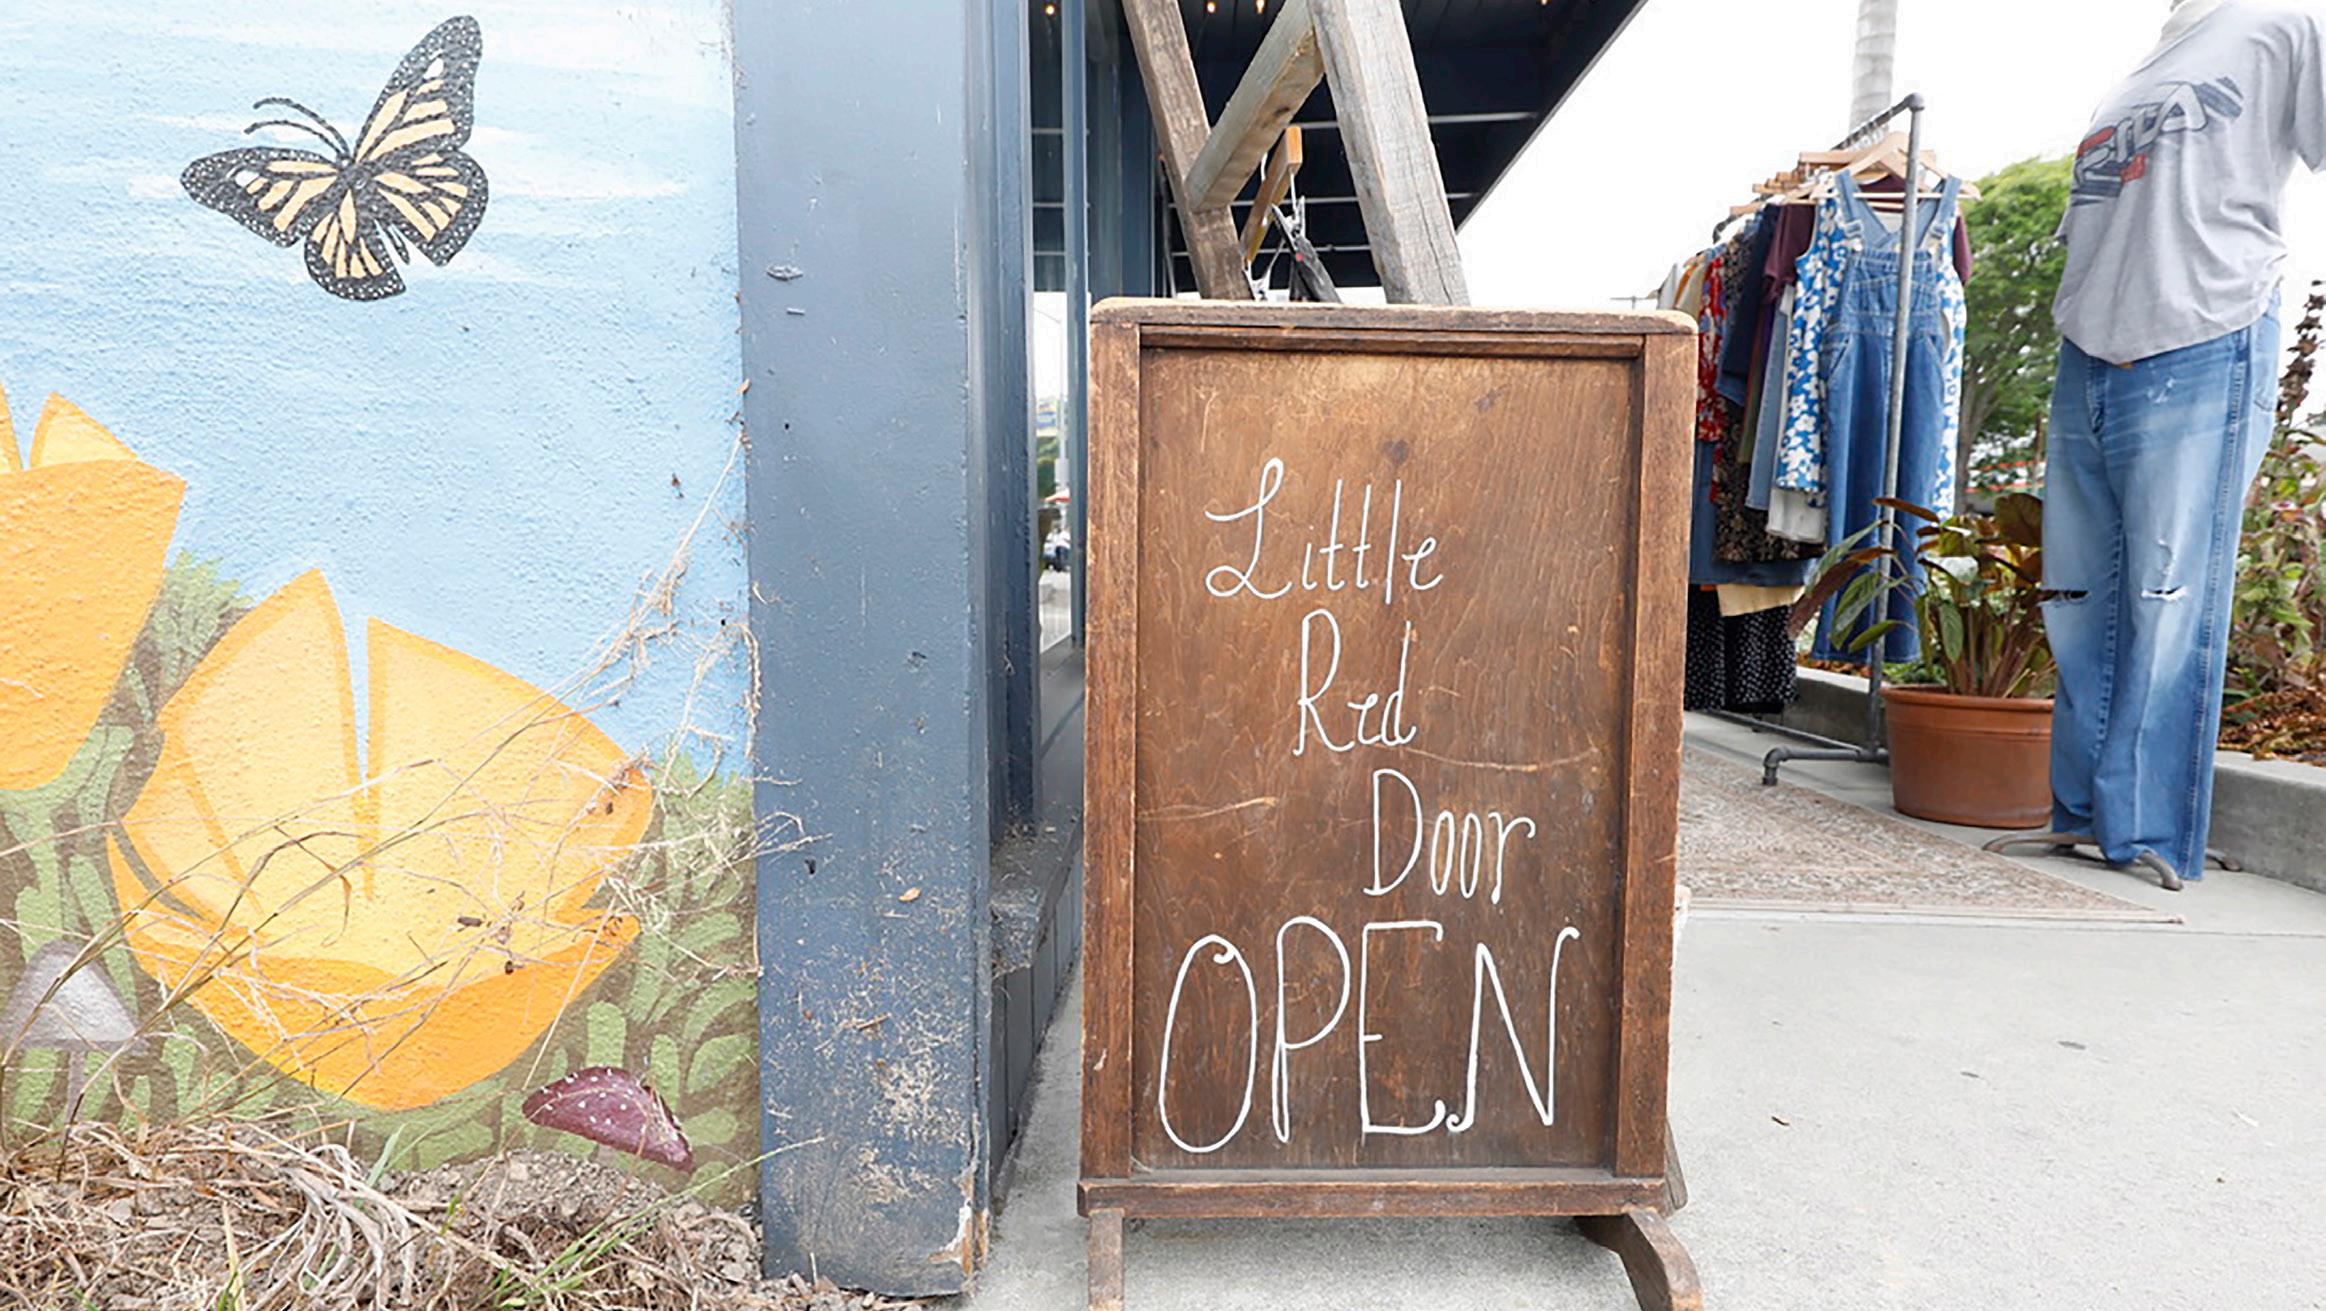 Little
Red
Door
OPEN